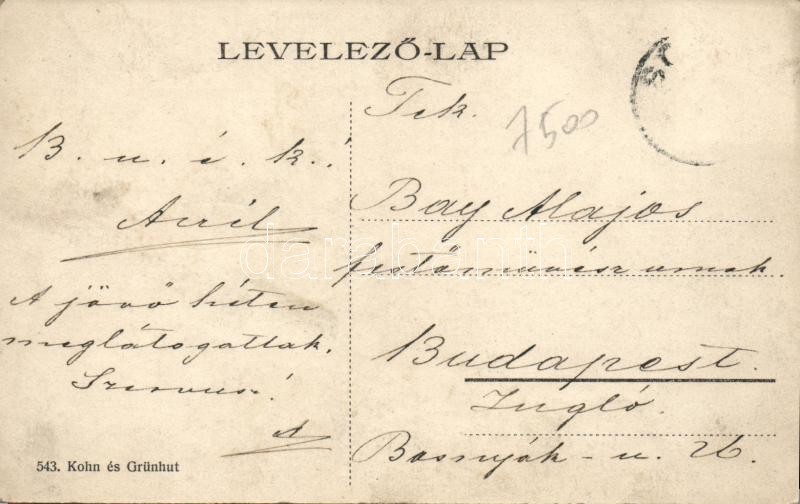 LEVELEZŐ-LAP
B. u. é. k.!
A jövő héten
meglátogatlak.
Szervusz!
A
543. Kohn és Grünhut
Tek.
7500
Bay Alajos
festőművész urnak.
Budapest.
Zugló.
Bosnyák-u.
darabanth